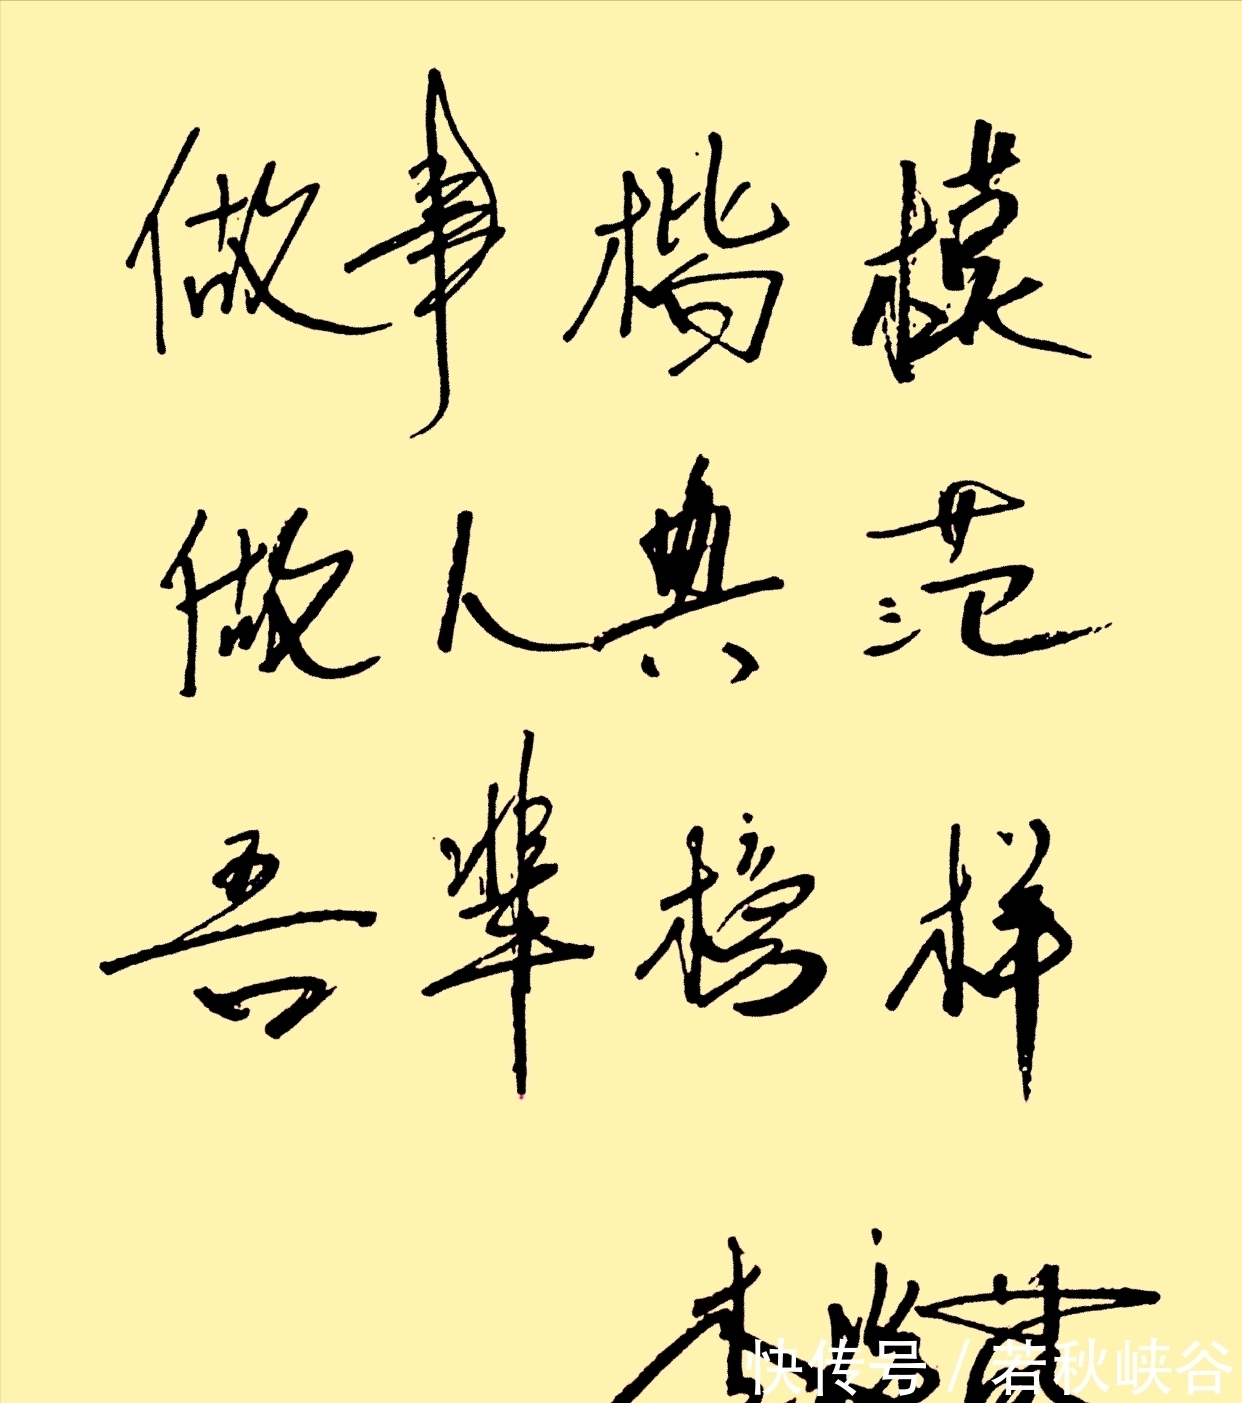 做事楷模
做人典范
吾辈榜样
李
快传号 / 若秋峡谷